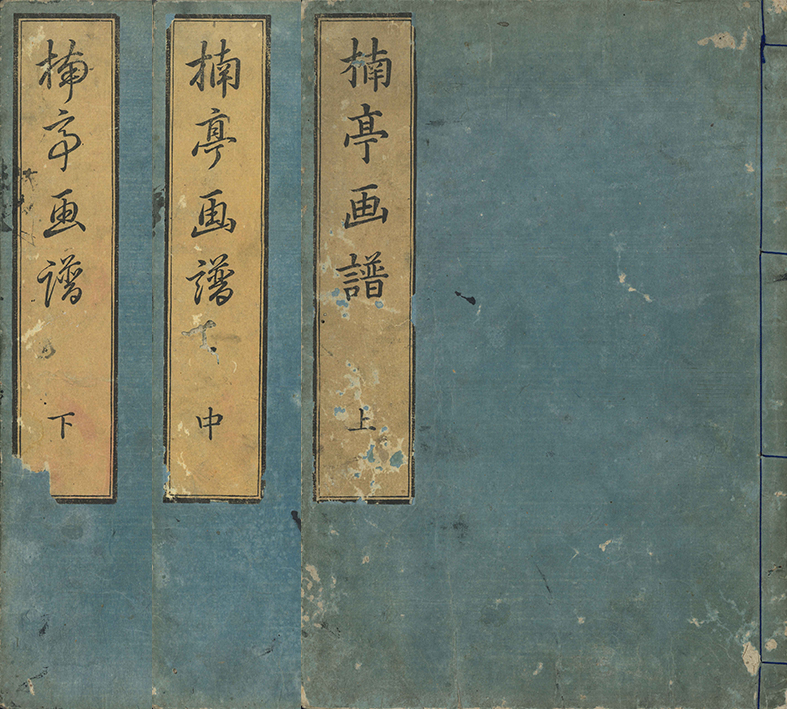 楠亭画譜 上
楠亭画譜 中
楠亭画譜 下